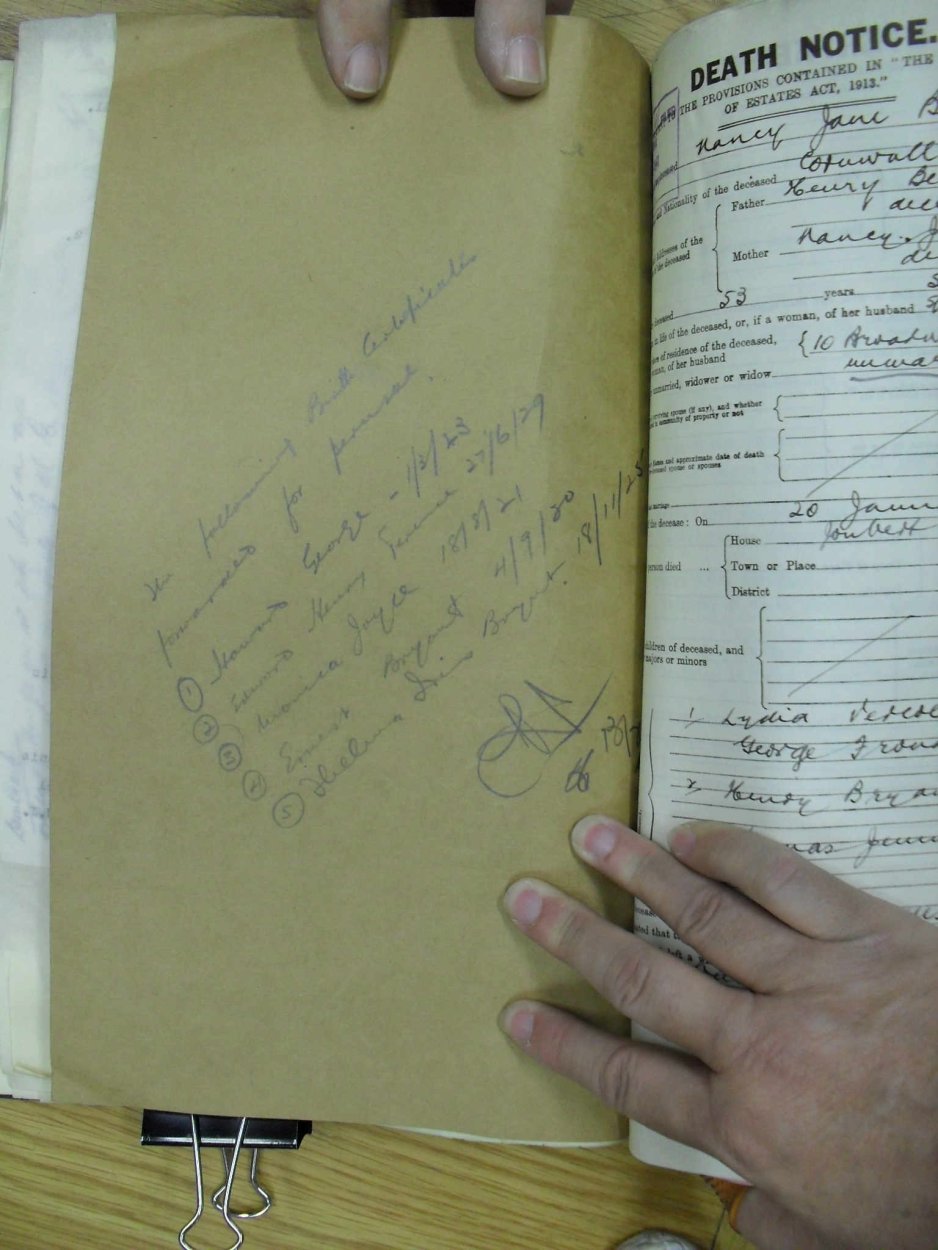 The following Birth Certificates
forwarded for perusal.
① Howard George - 1/2/23
② Edward Henry Terence 27/6/29
③ Veronica Joyce 18/8/21
④ Ernest Bryant 4/9/20
⑤ Thelma Iris Bryant. 18/11/25
DEATH NOTICE.
THE PROVISIONS CONTAINED IN "THE
OF ESTATES ACT, 1913."
Nancy Jane B
Nationality of the deceased Cornwall
Father Henry Be
dec
addresses of the
of the deceased
Mother Nancy J
de
deceased 53 years
in life of the deceased, or, if a woman, of her husband
of residence of the deceased,
of her husband
10 Broadw
unmarried, widower or widow unmar
surviving spouse (if any), and whether
in community of property or not
names and approximate date of death
spouse or spouses
marriage
the decease: On 20 Janu
House Joubert
person died ... Town or Place
District
children of deceased, and
majors or minors
1, Lydia
George
2, Henry Bryan